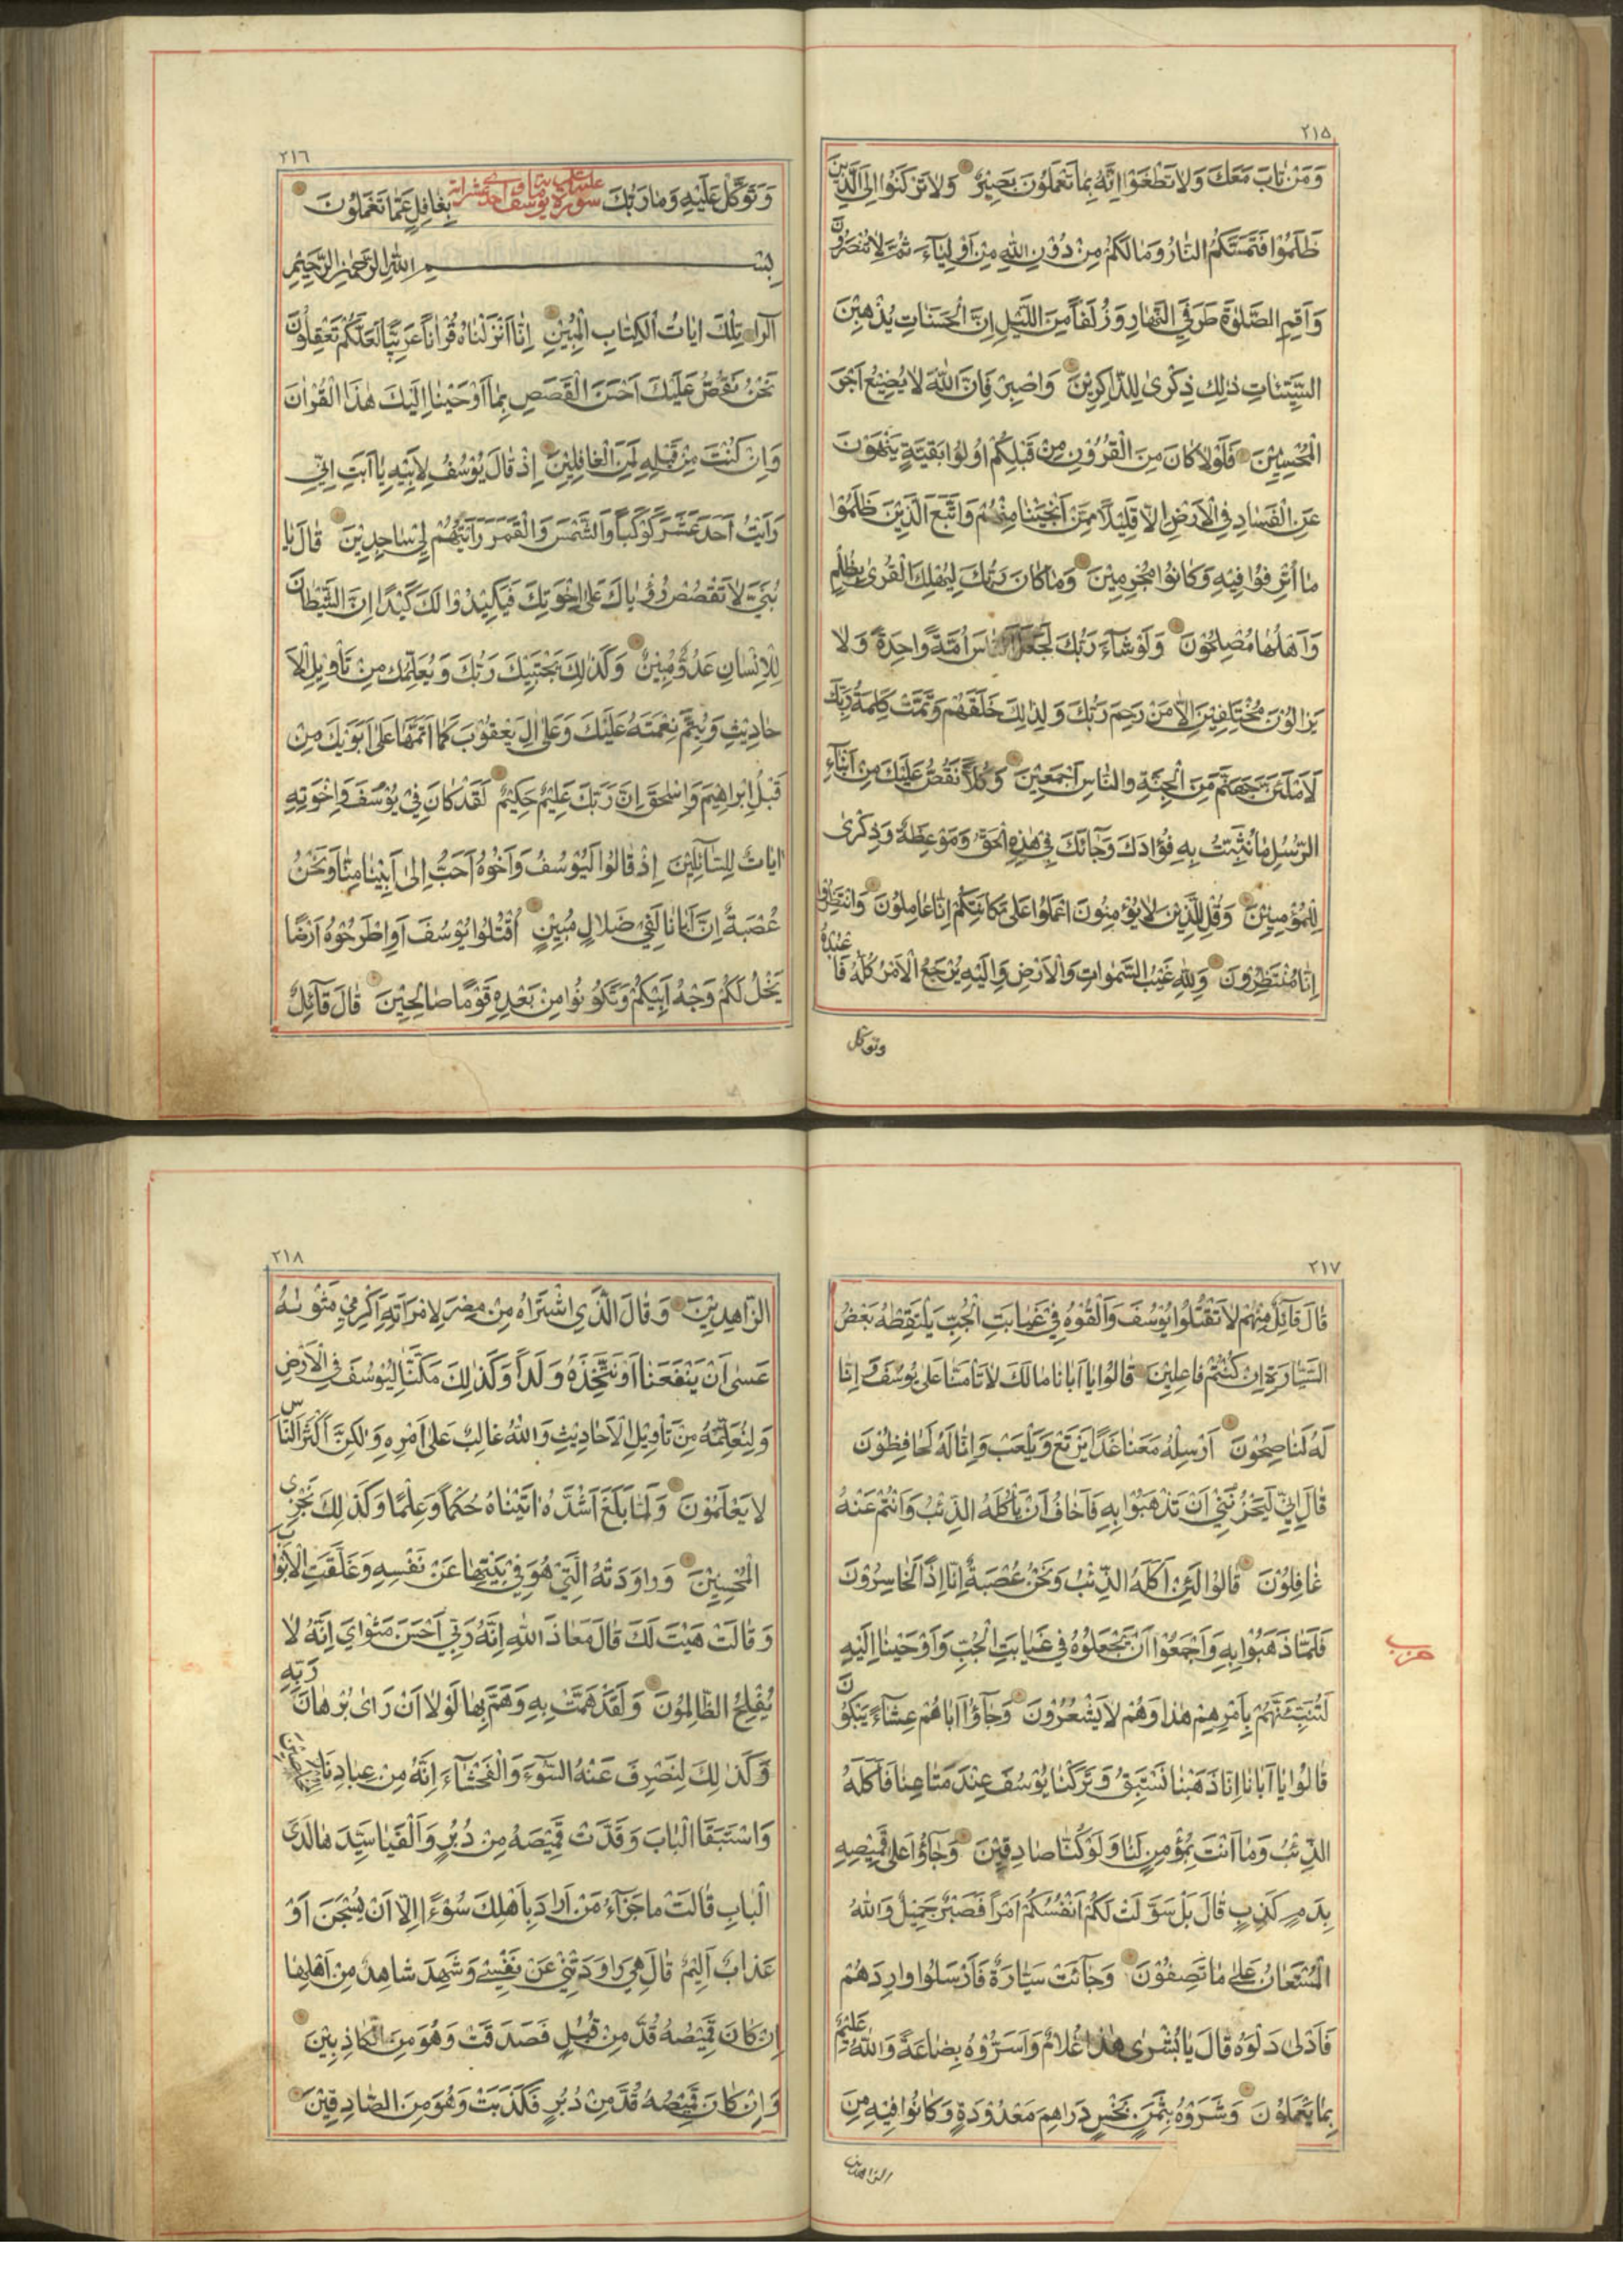 ٢١٥
وَمَنْ تَابَ مَعَكَ وَلَا تَطْغَوْا اِنَّهُ بِمَا تَعْمَلُونَ بَصِيْرٌ وَلَا تَرْكَنُوا اِلَى الَّذِيْنَ
ظَلَمُوْا فَتَمَسَّكُمُ النَّارُ وَمَا لَكُمْ مِنْ دُوْنِ اللهِ مِنْ اَوْلِيَآءَ ثُمَّ لَا تُنْصَرُوْنَ
وَاَقِمِ الصَّلٰوةَ طَرَفَيِ النَّهَارِ وَزُلَفًا مِنَ اللَّيْلِ اِنَّ الْحَسَنَاتِ يُذْهِبْنَ
السَّيِّئَاتِ ذٰلِكَ ذِكْرٰى لِلذَّاكِرِيْنَ وَاصْبِرْ فَاِنَّ اللهَ لَا يُضِيْعُ اَجْرَ
الْمُحْسِنِيْنَ فَلَوْلَا كَانَ مِنَ الْقُرُوْنِ مِنْ قَبْلِكُمْ اُولُوا بَقِيَّةٍ يَنْهَوْنَ
عَنِ الْفَسَادِ فِي الْاَرْضِ اِلَّا قَلِيْلًا مِمَّنْ اَنْجَيْنَا مِنْهُمْ وَاتَّبَعَ الَّذِيْنَ ظَلَمُوْا
مَا اُتْرِفُوْا فِيْهِ وَكَانُوْا مُجْرِمِيْنَ وَمَا كَانَ رَبُّكَ لِيُهْلِكَ الْقُرٰى بِظُلْمٍ
وَاَهْلُهَا مُصْلِحُوْنَ وَلَوْ شَآءَ رَبُّكَ لَجَعَلَ النَّاسَ اُمَّةً وَاحِدَةً وَلَا
يَزَالُوْنَ مُخْتَلِفِيْنَ اِلَّا مَنْ رَحِمَ رَبُّكَ وَلِذٰلِكَ خَلَقَهُمْ وَتَمَّتْ كَلِمَةُ رَبِّكَ
لَاَمْلَئَنَّ جَهَنَّمَ مِنَ الْجِنَّةِ وَالنَّاسِ اَجْمَعِيْنَ وَكُلًّا نَقُصُّ عَلَيْكَ مِنْ اَنْبَآءِ
الرُّسُلِ مَا نُثَبِّتُ بِهِ فُؤَادَكَ وَجَآئَكَ فِيْ هٰذِهِ الْحَقُّ وَمَوْعِظَةٌ وَذِكْرٰى
لِلْمُؤْمِنِيْنَ وَقُلْ لِلَّذِيْنَ لَا يُؤْمِنُونَ اعْمَلُوا عَلٰى مَكَانَتِكُمْ اِنَّا عَامِلُوْنَ وَانْتَظِرُوا
اِنَّا مُنْتَظِرُوْنَ وَلِلّٰهِ غَيْبُ السَّمٰوَاتِ وَالْاَرْضِ وَاِلَيْهِ يُرْجَعُ الْاَمْرُ كُلُّهُ فَاعْبُدْهُ
وتوكل
٢١٦
وَتَوَكَّلْ عَلَيْهِ وَمَا رَبُّكَ بِغَافِلٍ عَمَّا تَعْمَلُوْنَ
سورة يوسف
بِسْمِ اللهِ الرَّحْمٰنِ الرَّحِيْمِ
الٓرٰ تِلْكَ اٰيَاتُ الْكِتَابِ الْمُبِيْنِ اِنَّا اَنْزَلْنَاهُ قُرْاٰنًا عَرَبِيًّا لَعَلَّكُمْ تَعْقِلُوْنَ
نَحْنُ نَقُصُّ عَلَيْكَ اَحْسَنَ الْقَصَصِ بِمَا اَوْحَيْنَا اِلَيْكَ هٰذَا الْقُرْاٰنَ
وَاِنْ كُنْتَ مِنْ قَبْلِهِ لَمِنَ الْغَافِلِيْنَ اِذْ قَالَ يُوْسُفُ لِاَبِيْهِ يَا اَبَتِ اِنِّيْ
رَاَيْتُ اَحَدَ عَشَرَ كَوْكَبًا وَالشَّمْسَ وَالْقَمَرَ رَاَيْتُهُمْ لِيْ سَاجِدِيْنَ قَالَ يَا
بُنَيَّ لَا تَقْصُصْ رُؤْيَاكَ عَلٰى اِخْوَتِكَ فَيَكِيْدُوْا لَكَ كَيْدًا اِنَّ الشَّيْطَانَ
لِلْاِنْسَانِ عَدُوٌّ مُبِيْنٌ وَكَذٰلِكَ يَجْتَبِيْكَ رَبُّكَ وَيُعَلِّمُكَ مِنْ تَأْوِيْلِ الْاَ
حَادِيْثِ وَيُتِمُّ نِعْمَتَهُ عَلَيْكَ وَعَلٰى اٰلِ يَعْقُوْبَ كَمَا اَتَمَّهَا عَلٰى اَبَوَيْكَ مِنْ
قَبْلُ اِبْرَاهِيْمَ وَاِسْحٰقَ اِنَّ رَبَّكَ عَلِيْمٌ حَكِيْمٌ لَقَدْ كَانَ فِيْ يُوْسُفَ وَاِخْوَتِهِ
اٰيَاتٌ لِلسَّآئِلِيْنَ اِذْ قَالُوا لَيُوْسُفُ وَاَخُوْهُ اَحَبُّ اِلٰى اَبِيْنَا مِنَّا وَنَحْنُ
عُصْبَةٌ اِنَّ اَبَانَا لَفِيْ ضَلَالٍ مُبِيْنٍ اُقْتُلُوْا يُوْسُفَ اَوِاطْرَحُوْهُ اَرْضًا
يَخْلُ لَكُمْ وَجْهُ اَبِيْكُمْ وَتَكُوْنُوْا مِنْ بَعْدِهِ قَوْمًا صَالِحِيْنَ قَالَ قَآئِلٌ
٢١٧
قَالَ قَآئِلٌ مِنْهُمْ لَا تَقْتُلُوا يُوْسُفَ وَاَلْقُوْهُ فِيْ غَيَابَتِ الْجُبِّ يَلْتَقِطْهُ بَعْضُ
السَّيَّارَةِ اِنْ كُنْتُمْ فَاعِلِيْنَ قَالُوْا يَا اَبَانَا مَا لَكَ لَا تَأْمَنَّا عَلٰى يُوْسُفَ وَ اِنَّا
لَهُ لَنَاصِحُوْنَ اَرْسِلْهُ مَعَنَا غَدًا يَرْتَعْ وَيَلْعَبْ وَاِنَّا لَهُ لَحَافِظُوْنَ
قَالَ اِنِّيْ لَيَحْزُنُنِيْ اَنْ تَذْهَبُوْا بِهِ وَاَخَافُ اَنْ يَأْكُلَهُ الذِّئْبُ وَاَنْتُمْ عَنْهُ
غَافِلُوْنَ قَالُوْا لَئِنْ اَكَلَهُ الذِّئْبُ وَنَحْنُ عُصْبَةٌ اِنَّا اِذًا لَخَاسِرُوْنَ
فَلَمَّا ذَهَبُوْا بِهِ وَاَجْمَعُوْا اَنْ يَجْعَلُوْهُ فِيْ غَيَابَتِ الْجُبِّ وَاَوْحَيْنَا اِلَيْهِ
حزب
لَتُنَبِّئَنَّهُمْ بِاَمْرِهِمْ هٰذَا وَهُمْ لَا يَشْعُرُوْنَ وَجَآؤُا اَبَاهُمْ عِشَآءً يَبْكُوْنَ
قَالُوْا يَا اَبَانَا اِنَّا ذَهَبْنَا نَسْتَبِقُ وَتَرَكْنَا يُوْسُفَ عِنْدَ مَتَاعِنَا فَاَكَلَهُ
الذِّئْبُ وَمَا اَنْتَ بِمُؤْمِنٍ لَنَا وَلَوْ كُنَّا صَادِقِيْنَ وَجَآؤُا عَلٰى قَمِيْصِهِ
بِدَمٍ كَذِبٍ قَالَ بَلْ سَوَّلَتْ لَكُمْ اَنْفُسُكُمْ اَمْرًا فَصَبْرٌ جَمِيْلٌ وَاللهُ
الْمُسْتَعَانُ عَلٰى مَا تَصِفُوْنَ وَجَآئَتْ سَيَّارَةٌ فَاَرْسَلُوا وَارِدَهُمْ
فَاَدْلٰى دَلْوَهُ قَالَ يَا بُشْرٰى هٰذَا غُلَامٌ وَاَسَرُّوْهُ بِضَاعَةً وَاللهُ عَلِيْمٌ
بِمَا يَعْمَلُوْنَ وَشَرَوْهُ بِثَمَنٍ بَخْسٍ دَرَاهِمَ مَعْدُوْدَةٍ وَكَانُوْا فِيْهِ مِنَ
الزاهدين
٢١٨
الزَّاهِدِيْنَ وَقَالَ الَّذِي اشْتَرَاهُ مِنْ مِصْرَ لِامْرَاَتِهِ اَكْرِمِيْ مَثْوٰيهُ
عَسٰى اَنْ يَنْفَعَنَا اَوْ نَتَّخِذَهُ وَلَدًا وَكَذٰلِكَ مَكَّنَّا لِيُوْسُفَ فِي الْاَرْضِ
وَلِنُعَلِّمَهُ مِنْ تَأْوِيْلِ الْاَحَادِيْثِ وَاللهُ غَالِبٌ عَلٰى اَمْرِهِ وَلٰكِنَّ اَكْثَرَ النَّاسِ
لَا يَعْلَمُوْنَ وَلَمَّا بَلَغَ اَشُدَّهُ اٰتَيْنَاهُ حُكْمًا وَعِلْمًا وَكَذٰلِكَ نَجْزِي
الْمُحْسِنِيْنَ وَرَاوَدَتْهُ الَّتِيْ هُوَ فِيْ بَيْتِهَا عَنْ نَفْسِهِ وَغَلَّقَتِ الْاَبْوَابَ
وَقَالَتْ هَيْتَ لَكَ قَالَ مَعَاذَ اللهِ اِنَّهُ رَبِّيْ اَحْسَنَ مَثْوَايَ اِنَّهُ لَا
يُفْلِحُ الظَّالِمُوْنَ وَلَقَدْ هَمَّتْ بِهِ وَهَمَّ بِهَا لَوْلَا اَنْ رَاٰى بُرْهَانَ رَبِّهِ
وَكَذٰلِكَ لِنَصْرِفَ عَنْهُ السُّوْءَ وَالْفَحْشَآءَ اِنَّهُ مِنْ عِبَادِنَا الْمُخْلَصِيْنَ
وَاسْتَبَقَا الْبَابَ وَقَدَّتْ قَمِيْصَهُ مِنْ دُبُرٍ وَاَلْفَيَا سَيِّدَهَا لَدَى
الْبَابِ قَالَتْ مَا جَزَآءُ مَنْ اَرَادَ بِاَهْلِكَ سُوْءًا اِلَّا اَنْ يُسْجَنَ اَوْ
عَذَابٌ اَلِيْمٌ قَالَ هِيَ رَاوَدَتْنِيْ عَنْ نَفْسِيْ وَشَهِدَ شَاهِدٌ مِنْ اَهْلِهَا
اِنْ كَانَ قَمِيْصُهُ قُدَّ مِنْ قُبُلٍ فَصَدَقَتْ وَهُوَ مِنَ الْكَاذِبِيْنَ
وَاِنْ كَانَ قَمِيْصُهُ قُدَّ مِنْ دُبُرٍ فَكَذَبَتْ وَهُوَ مِنَ الصَّادِقِيْنَ